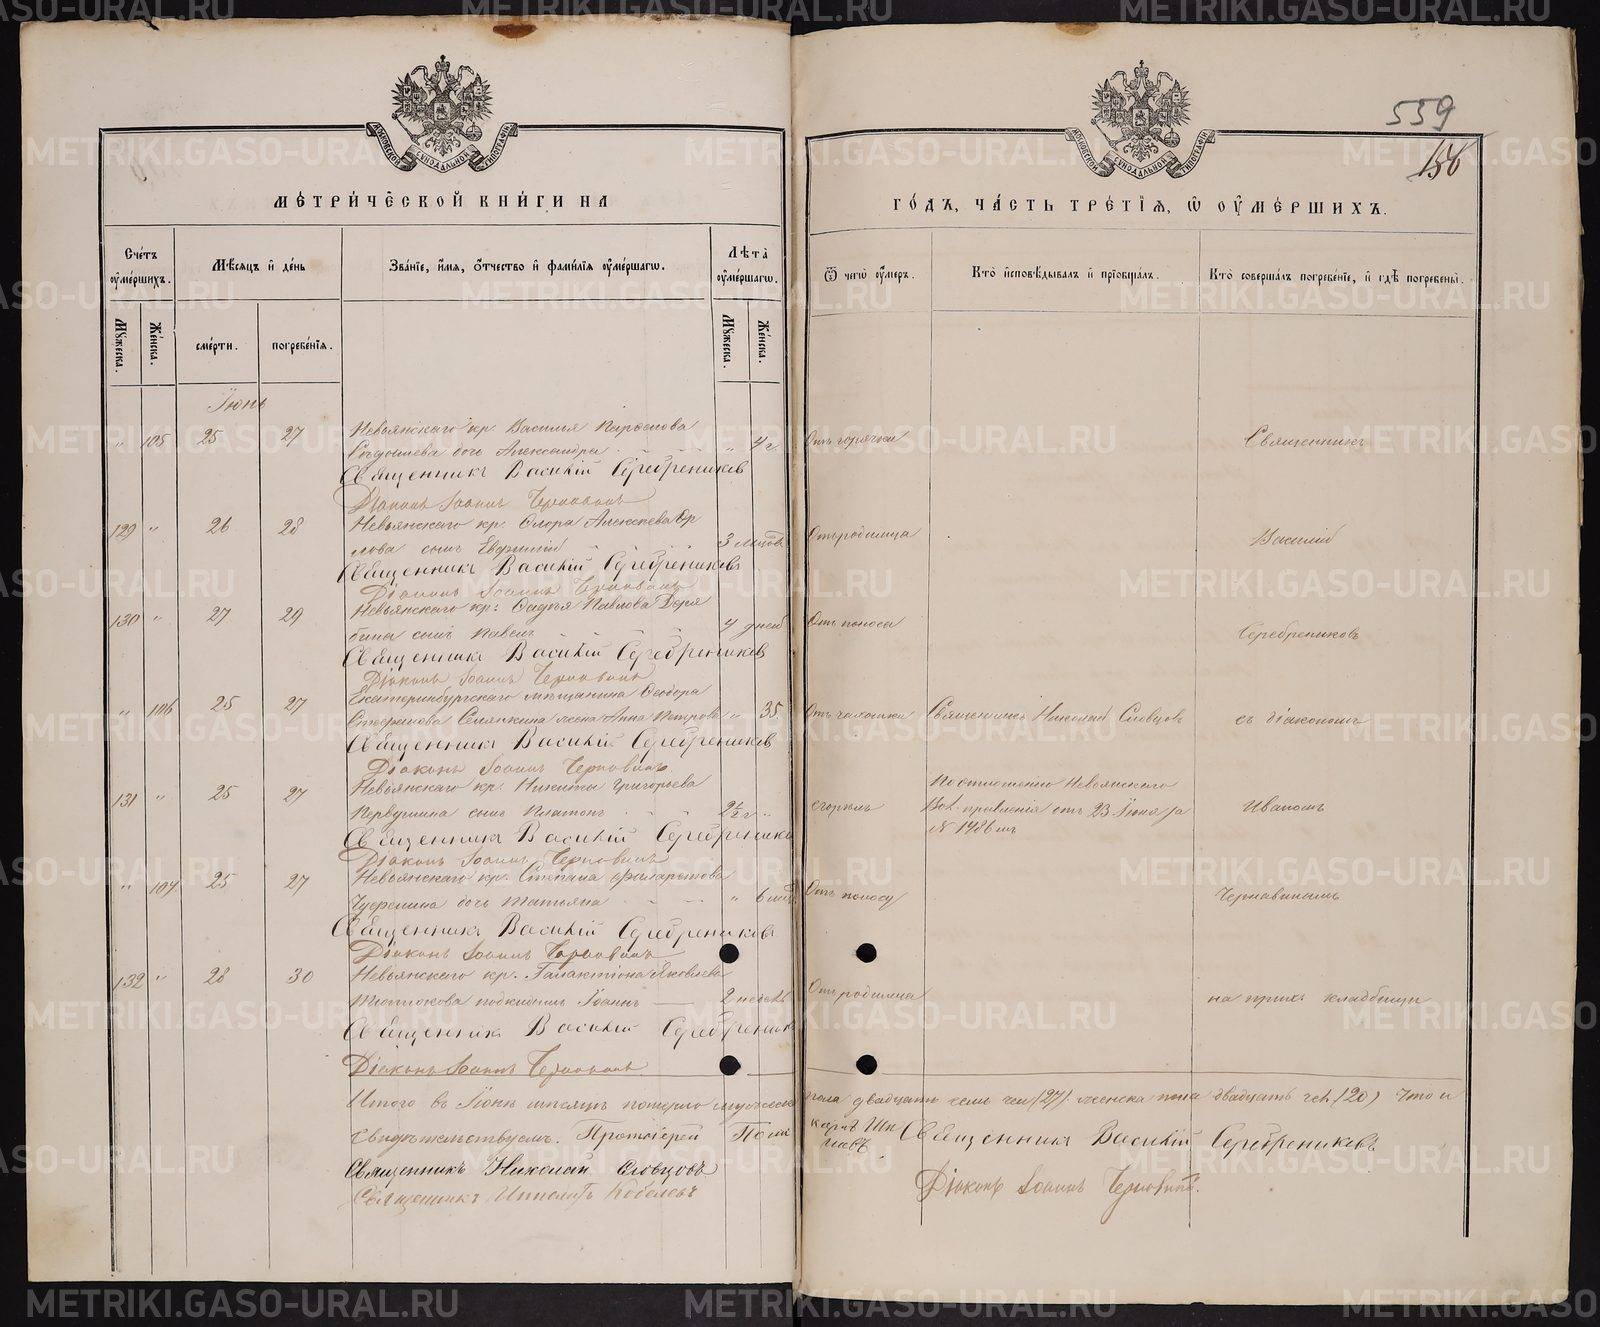 МЕТРИЧЕСКОЙ КНИГИ НА
Счетъ умершихъ.
Мѣсяцъ и день
Званіе, имя, отчество и фамилія умершаго.
Лѣта умершаго.
Мужеска.
Женска.
смерти.
погребенія.
Мужеска.
Женска.
Іюнь
„ 105 25 27 Невьянскаго кр. Василья
дочь Александра „ 4 г.
Священникъ Василій Серебрениковъ
Діаконъ Іоаннъ Чернавинъ
129 „ 26 28 Невьянскаго кр. Флора Алексѣева Ор
лова сынъ Евфимій 3 мѣсяцовъ
Священникъ Василій Серебрениковъ
Діаконъ Іоаннъ Чернавинъ
130 „ 27 29 Невьянскаго кр: Фадѣя Павлова Деря
бина сынъ Павелъ 4 дней
Священникъ Василій Серебрениковъ
Діаконъ Іоаннъ Чернавинъ
„ 106 25 27 Екатеринбургскаго мѣщанина Феодора
жена Анна Петрова „ 35.
Священникъ Василій Серебрениковъ
Діаконъ Іоаннъ Чернавинъ.
131 „ 25 27 Невьянскаго кр. Никиты Григорьева
Первушина сынъ Платонъ 2½ г. „
Священникъ Василій Серебрениковъ
Діаконъ Іоаннъ Чернавинъ
„ 107 25 27 Невьянскаго кр. Степана Филаретова
дочь Татьяна „ 6
Священникъ Василій Серебрениковъ
Діаконъ Іоаннъ Чернавинъ
132 „ 28 30 Невьянскаго кр. Галактіона Яковлева
подкидышъ Іоаннъ 2 недѣль
Священникъ Василій Серебрениковъ
Діаконъ Іоаннъ Чернавинъ.
Итого въ Іюнѣ мѣсяцѣ померло мужеска
свидѣтельствуемъ. Протоіерей
Священникъ Николай Словцовъ
Священникъ Ипполитъ Кобелевъ
559
156
ГОДЪ, ЧАСТЬ ТРЕТІЯ, Ѡ УМЕРШИХЪ.
Ѿ чего умеръ.
Кто исповѣдывалъ и пріобщалъ.
Кто совершалъ погребеніе, и гдѣ погребены.
Отъ горячки
Священникъ
Отъ родимца
Василій
Отъ поноса
Серебрениковъ
Отъ чахотки
Священникъ Николай Словцовъ
съ діакономъ
сгорѣлъ
По отношенію Невьянскаго
Вол. правленія отъ 23 Іюня за
№ 1486 мъ
Иваномъ
Отъ поносу
Чернавинымъ
Отъ родимца
на прих. кладбищѣ
пола двадцать семь чел (27). женска пола двадцать чел. (20) Что и
Священникъ Василій Серебрениковъ
Діаконъ Іоаннъ Чернавинъ.
METRIKI.GASO-URAL.RU